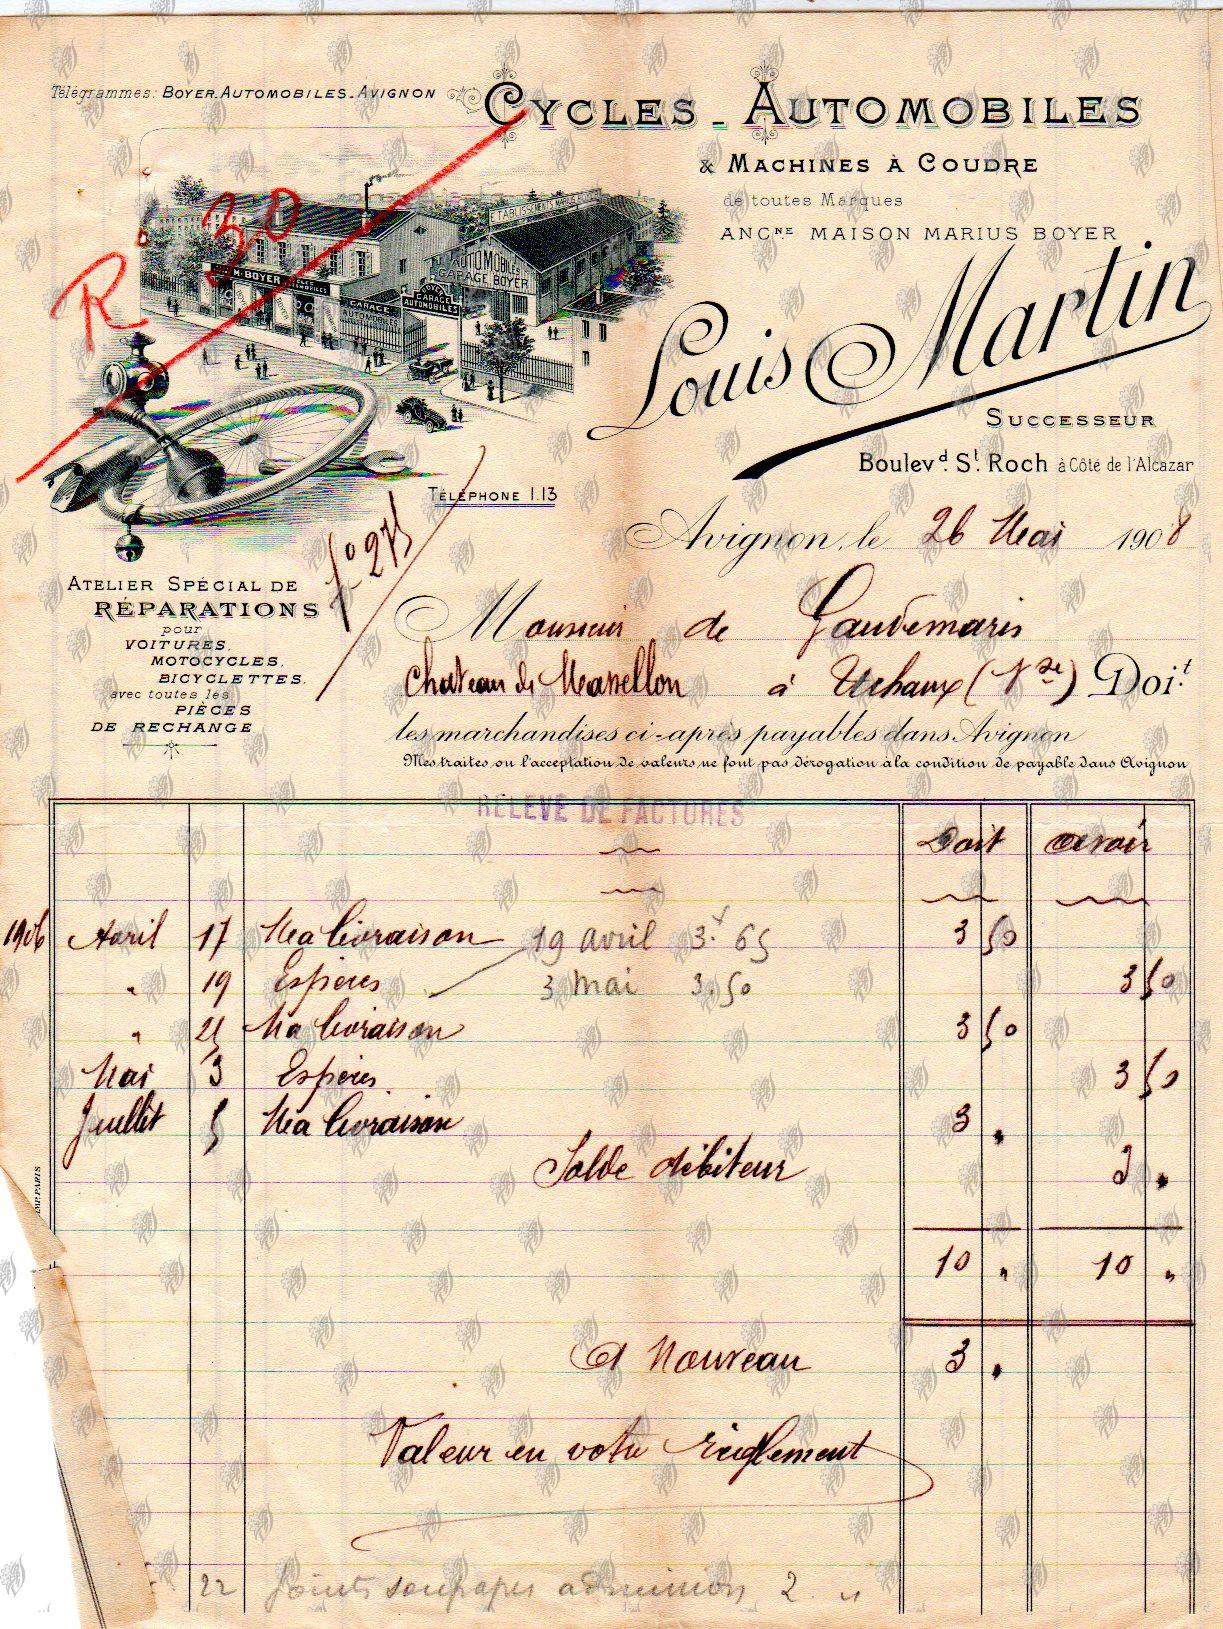 Télégrammes: BOYER-AUTOMOBILES-AVIGNON
CYCLES - AUTOMOBILES
& MACHINES À COUDRE
de toutes Marques
ANCNE MAISON MARIUS BOYER
Louis Martin
SUCCESSEUR
Boulevd. St. Roch à Côté de l'Alcazar
R 30
ÉTABLISSEMENTS MARIUS BOYER
AUTOMOBILES
GARAGE BOYER
M. BOYER
BOYER
GARAGE
AUTOMOBILES
GARAGE
AUTOMOBILES
TÉLÉPHONE 1.13
fo 275
Avignon, le 26 Mai 1908
ATELIER SPÉCIAL DE
RÉPARATIONS
pour
VOITURES,
MOTOCYCLES,
BICYCLETTES,
avec toutes les
PIÈCES
DE RECHANGE
Monsieur de Gaudemaris
Chateau de Massellon à Uchaux (Vse) Doit
les marchandises ci-après payables dans Avignon
Mes traites ou l'acceptation de valeurs ne font pas dérogation à la condition de payable dans Avignon
RELEVÉ DE FACTURES
Doit avoir
1906 Avril 17 Ma livraison 19 avril 3f. 65 3 50
" 19 Espèces 3 mai 3.50 3 50
" 25 Ma livraison 3 50
Mai 3 Espèces 3 50
Juillet 5 Ma livraison 3 "
Solde débiteur 3 "
10 " 10 "
A Nouveau 3 "
Valeur en votre règlement
22 joints soupapes admission 2 "
IMP. PARIS